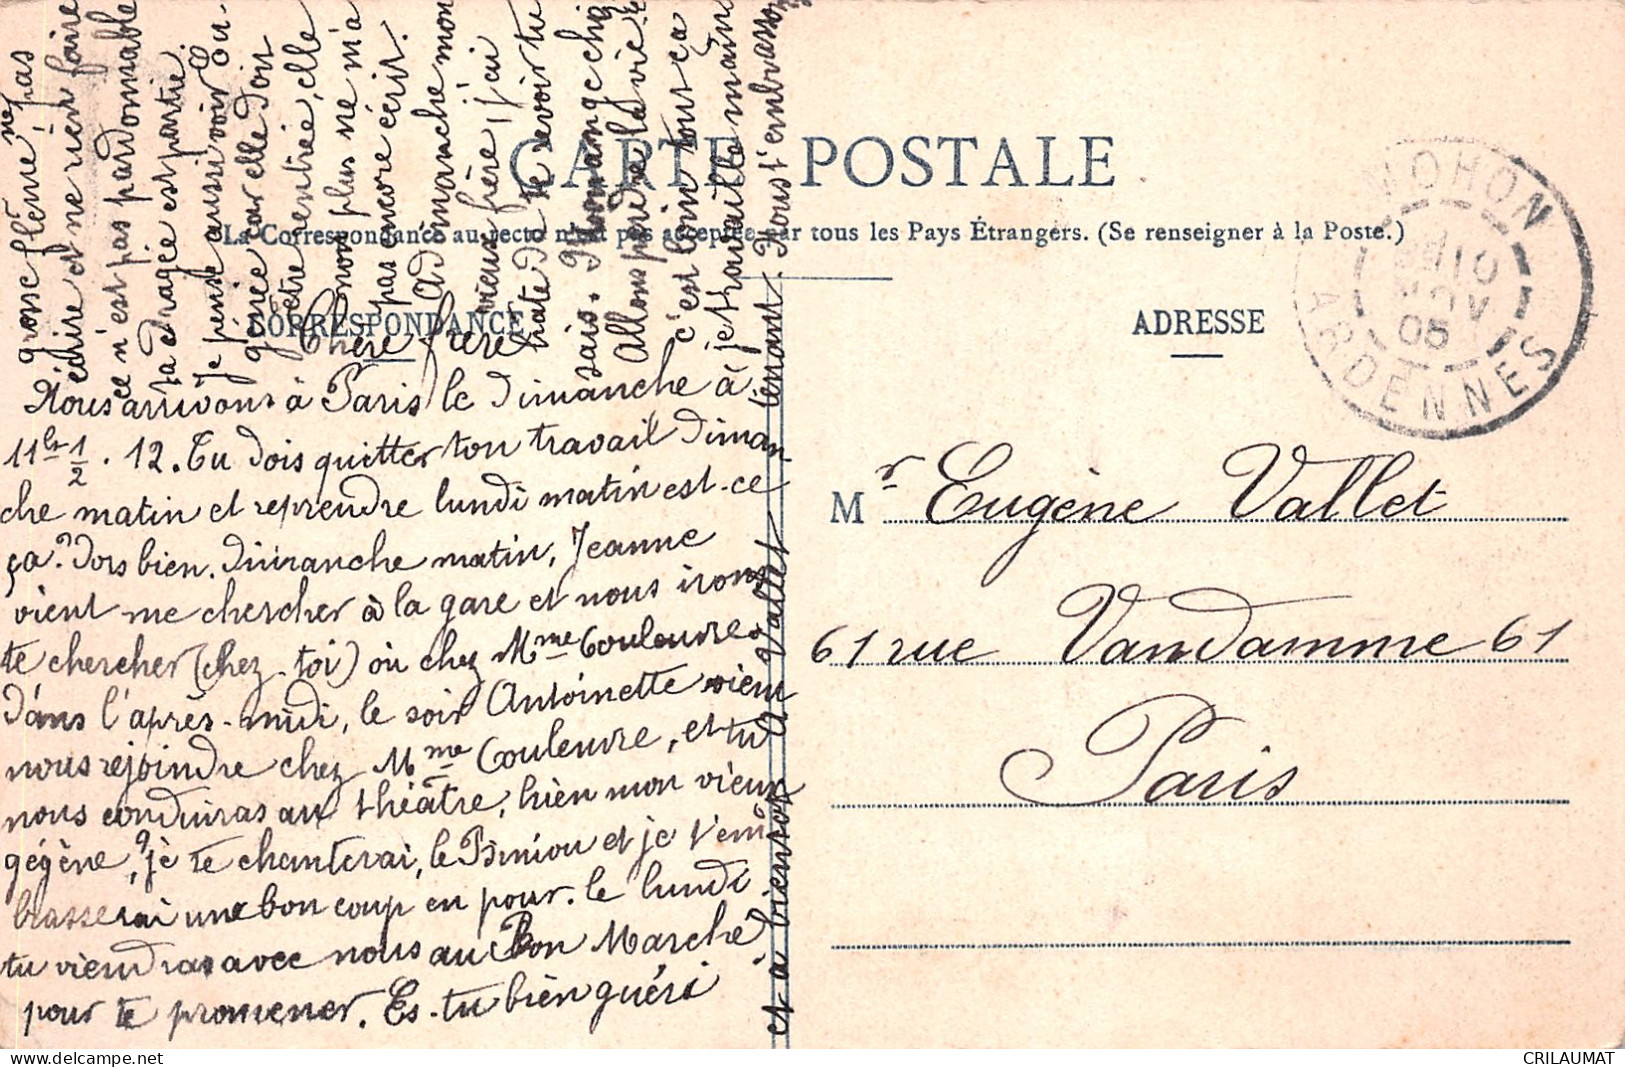 CARTE POSTALE
La Correspondance au recto n'est pas acceptée par tous les Pays Étrangers. (Se renseigner à la Poste.)
CORRESPONDANCE
ADRESSE
MOHON
10
NOV
05
ARDENNES
Mr Eugène Vallet
61 rue Vandamme 61
Paris
Chère frère
Nous arrivons à Paris le Dimanche à
11hs 1/2 . 12. Tu dois quitter ton travail Diman
che matin et reprendre lundi matin est-ce
ça? Dors bien. Dimanche matin, Jeanne
vient me chercher à la gare et nous irons
te chercher (chez-toi) où chez Mme Couleuvre
Dans l'après-midi, le soir Antoinette vient
nous rejoindre chez Mme Couleuvre, et tu
nous conduiras au théâtre, hien mon vieux
gégène, ? je te chanterai, le Biniou et je t'em
brasserai une bon coup en pour. le lundi
tu viendras avec nous au Bon Marché
pour te promener. Es-tu bien guéri
grosse flème, ne pas
écrire et ne rien faire
ce n'est pas pardonnable
ta dragée est partie.
Je pense aussi voir Eu-
génie car elle doit
être rentrée, elle
non plus ne m'a
pas encore écrit.
A dimanche mon
vieux frère, j'ai
hate de te revoir tu
sais.
Allons
c'est loin tout ça
je travaille main
tenant. Nous t'embrassons
et a bientot
A Vallet
CRILAUMAT